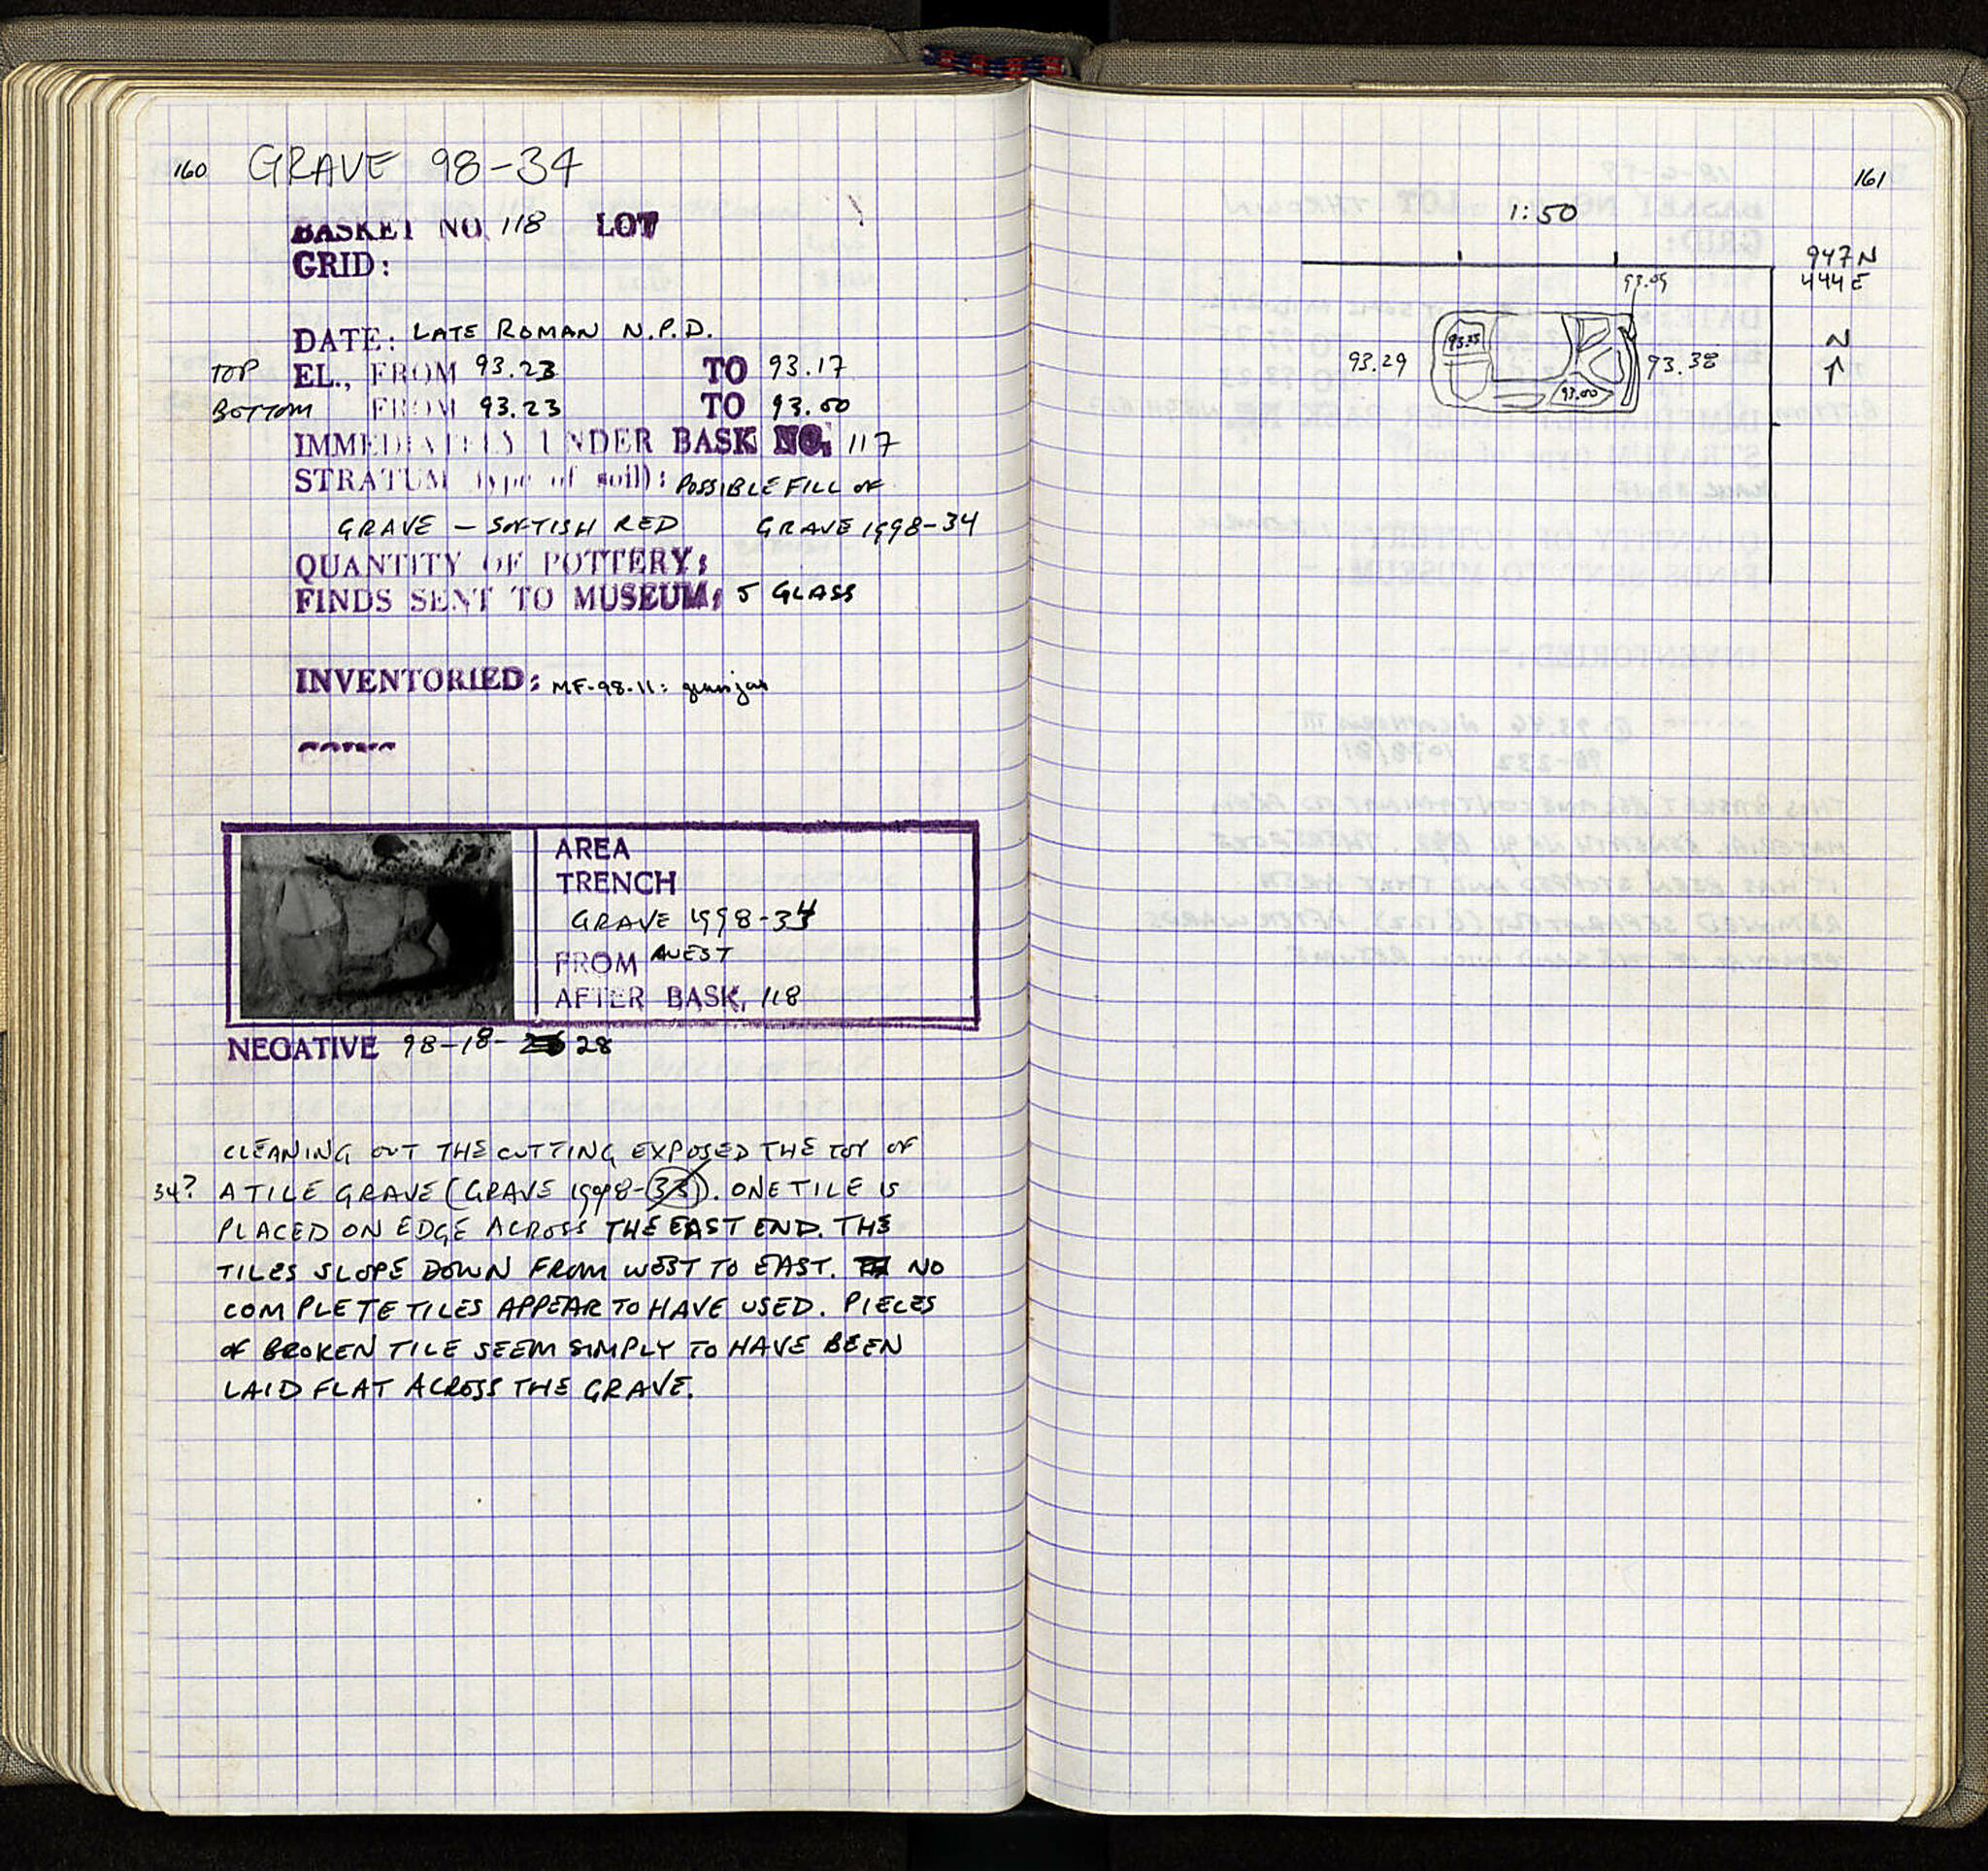 160 GRAVE 98-34
BASKET NO. 118 LOT
GRID:
DATE: LATE ROMAN N.P.D.
TOP EL., FROM 93.23 TO 93.17
BOTTOM FROM 93.23 TO 93.00
IMMEDIATELY UNDER BASK NO. 117
STRATUM (type of soil): POSSIBLE FILL OF
GRAVE - SOFTISH RED GRAVE 1998-34
QUANTITY OF POTTERY:
FINDS SENT TO MUSEUM: 5 GLASS
INVENTORIED: MF-98-11:
AREA
TRENCH
GRAVE 1998-34
FROM WEST
AFTER BASK. 118
NEGATIVE 98-18- 28
CLEANING OUT THE CUTTING EXPOSED THE TOP OF
34? A TILE GRAVE (GRAVE 1998-33). ONE TILE IS
PLACED ON EDGE ACROSS THE EAST END. THE
TILES SLOPE DOWN FROM WEST TO EAST. NO
COMPLETE TILES APPEAR TO HAVE USED. PIECES
OF BROKEN TILE SEEM SIMPLY TO HAVE BEEN
LAID FLAT ACROSS THE GRAVE.
161
1:50
947 N
444 E
93.09
93.29
93.38
93.00
N